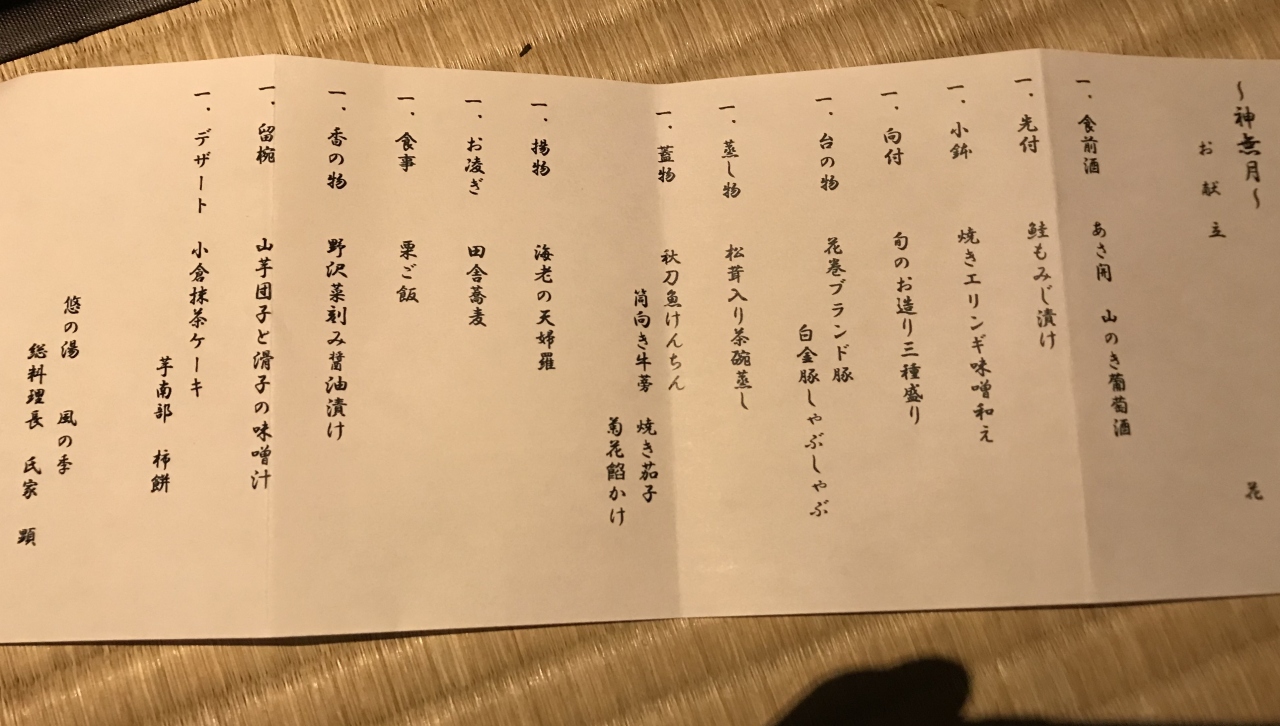 ～神無月～
花
お献立
一、食前酒 あさ開 山のき葡萄酒
一、先付 鮭もみじ漬け
一、小鉢 焼きエリンギ味噌和え
一、向付 旬のお造り三種盛り
一、台の物 花巻ブランド豚
白金豚しゃぶしゃぶ
一、蒸し物 松茸入り茶碗蒸し
一、蓋物 秋刀魚けんちん
筒向き牛蒡 焼き茄子
菊花餡かけ
一、揚物 海老の天婦羅
一、お凌ぎ 田舎蕎麦
一、食事 栗ご飯
一、香の物 野沢菜刻み醤油漬け
一、留椀 山芋団子と滑子の味噌汁
一、デザート 小倉抹茶ケーキ
芋南部 柿餅
悠の湯 風の季
総料理長 氏家 顕